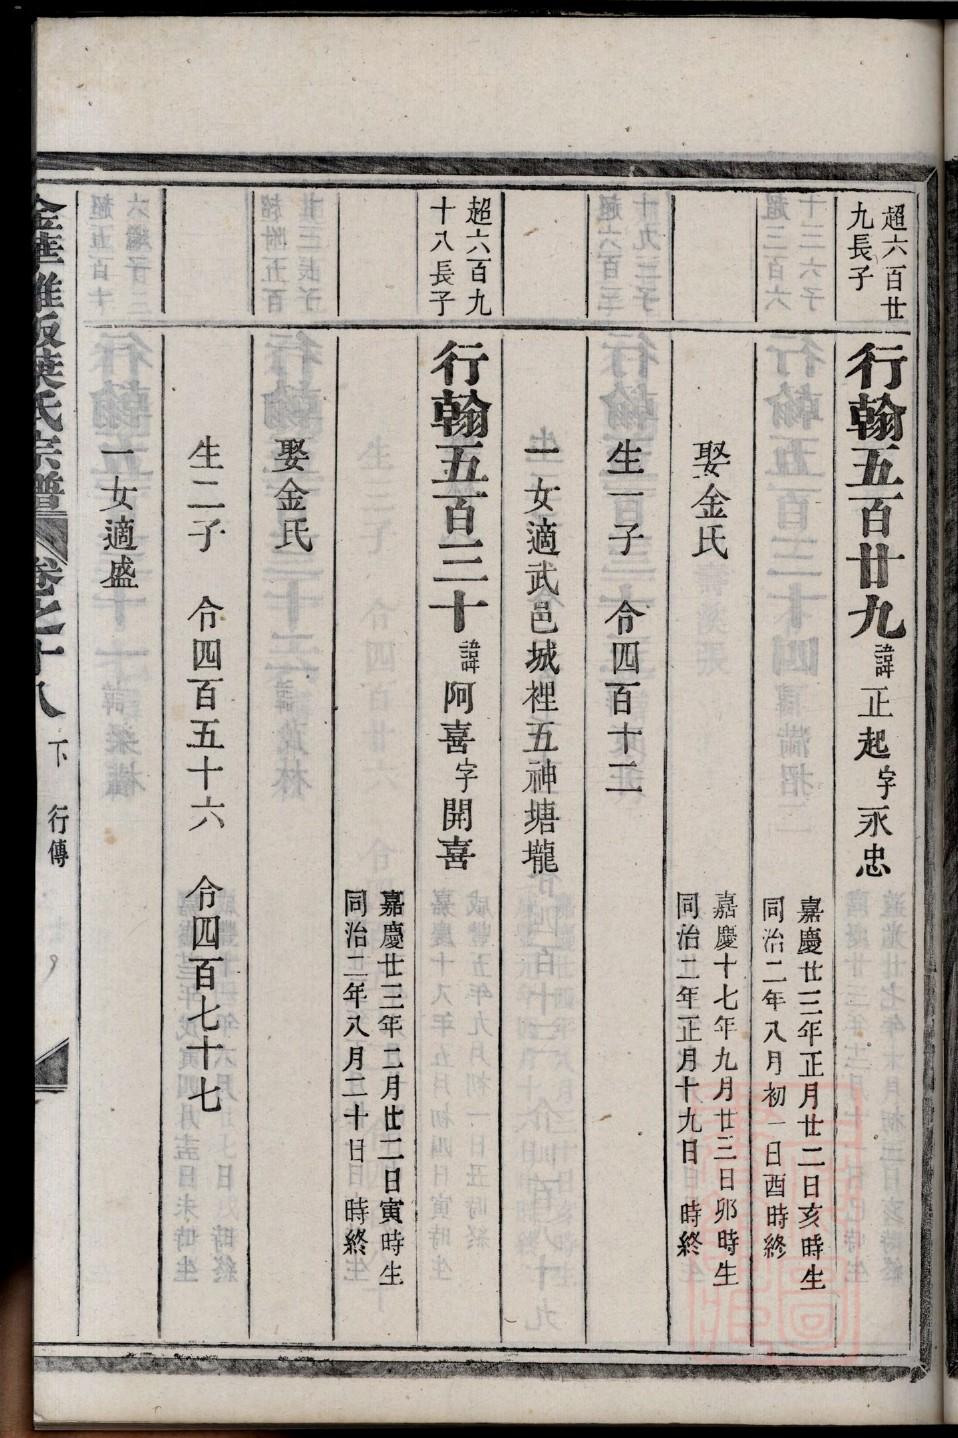 超六百廿
九長子
行翰五百廿九 諱正起字永忠
嘉慶廿三年正月廿二日亥時生
同治二年八月初一日酉時終
娶金氏
嘉慶十七年九月廿三日卯時生
同治二年正月十九日 時終
生一子 令四百十二
一女適武邑城裡五神塘壠
超六百九
十八長子
行翰五百三十 諱阿喜字開喜
嘉慶廿三年二月廿二日寅時生
同治二年八月二十日 時終
娶金氏
生二子 令四百五十六 令四百七十七
一女適盛
葉氏宗譜 卷之十八 下 行傳